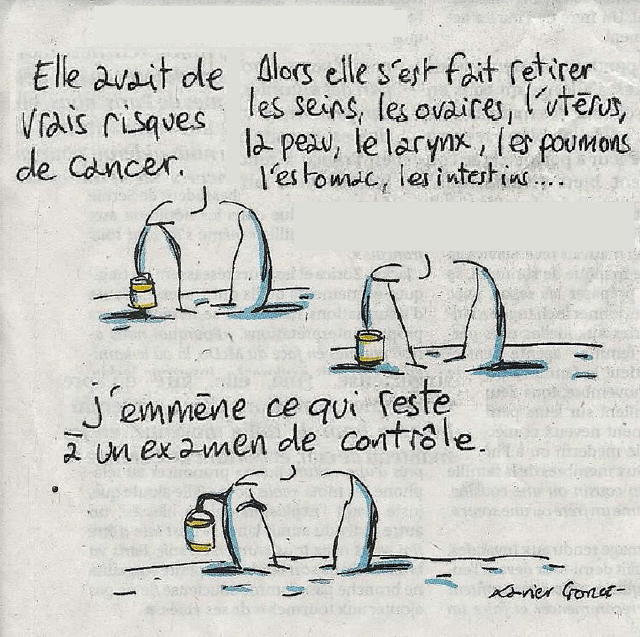 Elle avait de
vrais risques
de cancer.
Alors elle s'est fait retirer
les seins, les ovaires, l'utérus,
la peau, le larynx, les poumons
l'estomac, les intestins....
j'emmène ce qui reste
à un examen de contrôle.
xavier Gorce-